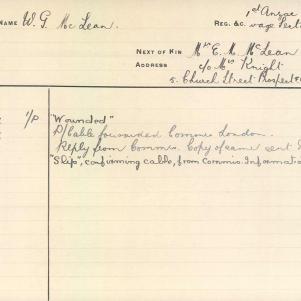 1st Anzac
NAME W. G. McLean. REG. &C.
NEXT OF KIN Mrs E. M. McLean
ADDRESS c/o Mrs Knight
5. Church Street Prospect
1/P "Wounded"
P/Cable forwarded Commis London.
Reply from Commis. Copy of same sent
"Ship", confirming cable, from Commis. Informatio